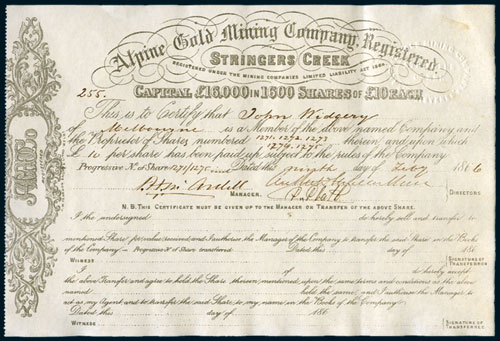 Alpine Gold Mining Company, Registered
STRINGERS CREEK
REGISTERED UNDER THE MINING COMPANIES LIMITED LIABILITY ACT 1864
CAPITAL £16,000 IN 1600 SHARES OF £10 EACH
255.
This is to Certify that John Widgery
Melbourne is a Member of the above named Company and
the Proprietor of Shares numbered 1271.1272.1273 thereon and upon which
1274.1275
£10 per share has been paid up subject to the rules of the Company
Progressive No. of Share 1271/1275 Dated this ninth day of 1866
MANAGER.
DIRECTORS
N.B. THIS CERTIFICATE MUST BE GIVEN UP TO THE MANAGER ON TRANSFER OF THE ABOVE SHARE.
I the undersigned do hereby sell and transfer to
mentioned Share for value received and I authorise the Manager of the Company to transfer the said Share in the Books
of the Company Progressive No. of Share transferred Dated this day of 186
WITNESS
SIGNATURE OF TRANSFEROR
I of do hereby accept
the above Transfer and agree to hold the Share therein mentioned, upon the same terms and conditions as the above
named held the same, and I authorise the Manager to
act as my Agent and to transfer the said Share to my name in the Books of the Company.
Dated this day of 186
WITNESS
SIGNATURE OF TRANSFEREE.